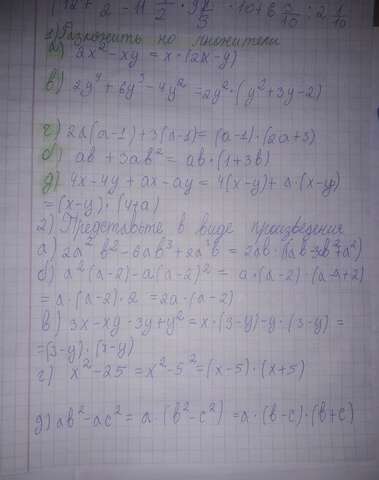 1) Разложить на множители
а) 2x² - xy = x · (2x - y)
в) 2y⁴ + 6y³ - 4y² = 2y² · (y² + 3y - 2)
г) 2a(a - 1) + 3(a - 1) = (a - 1) · (2a + 3)
б) ab + 3ab² = ab · (1 + 3b)
д) 4x - 4y + ax - ay = 4(x - y) + a · (x - y)
= (x - y) · (4 + a)
2) Представьте в виде произведения
а) 2a²b² - 6ab³ + 2a³b = 2ab · (ab - 3b² + a²)
б) a²(a - 2) - a(a - 2)² = a · (a - 2) · (a - a + 2)
= a · (a - 2) · 2 = 2a · (a - 2)
в) 3x - xy - 3y + y² = x · (3 - y) - y · (3 - y) =
= (3 - y) · (x - y)
г) x² - 25 = x² - 5² = (x - 5) · (x + 5)
д) ab² - ac² = a · (b² - c²) = a · (b - c) · (b + c)